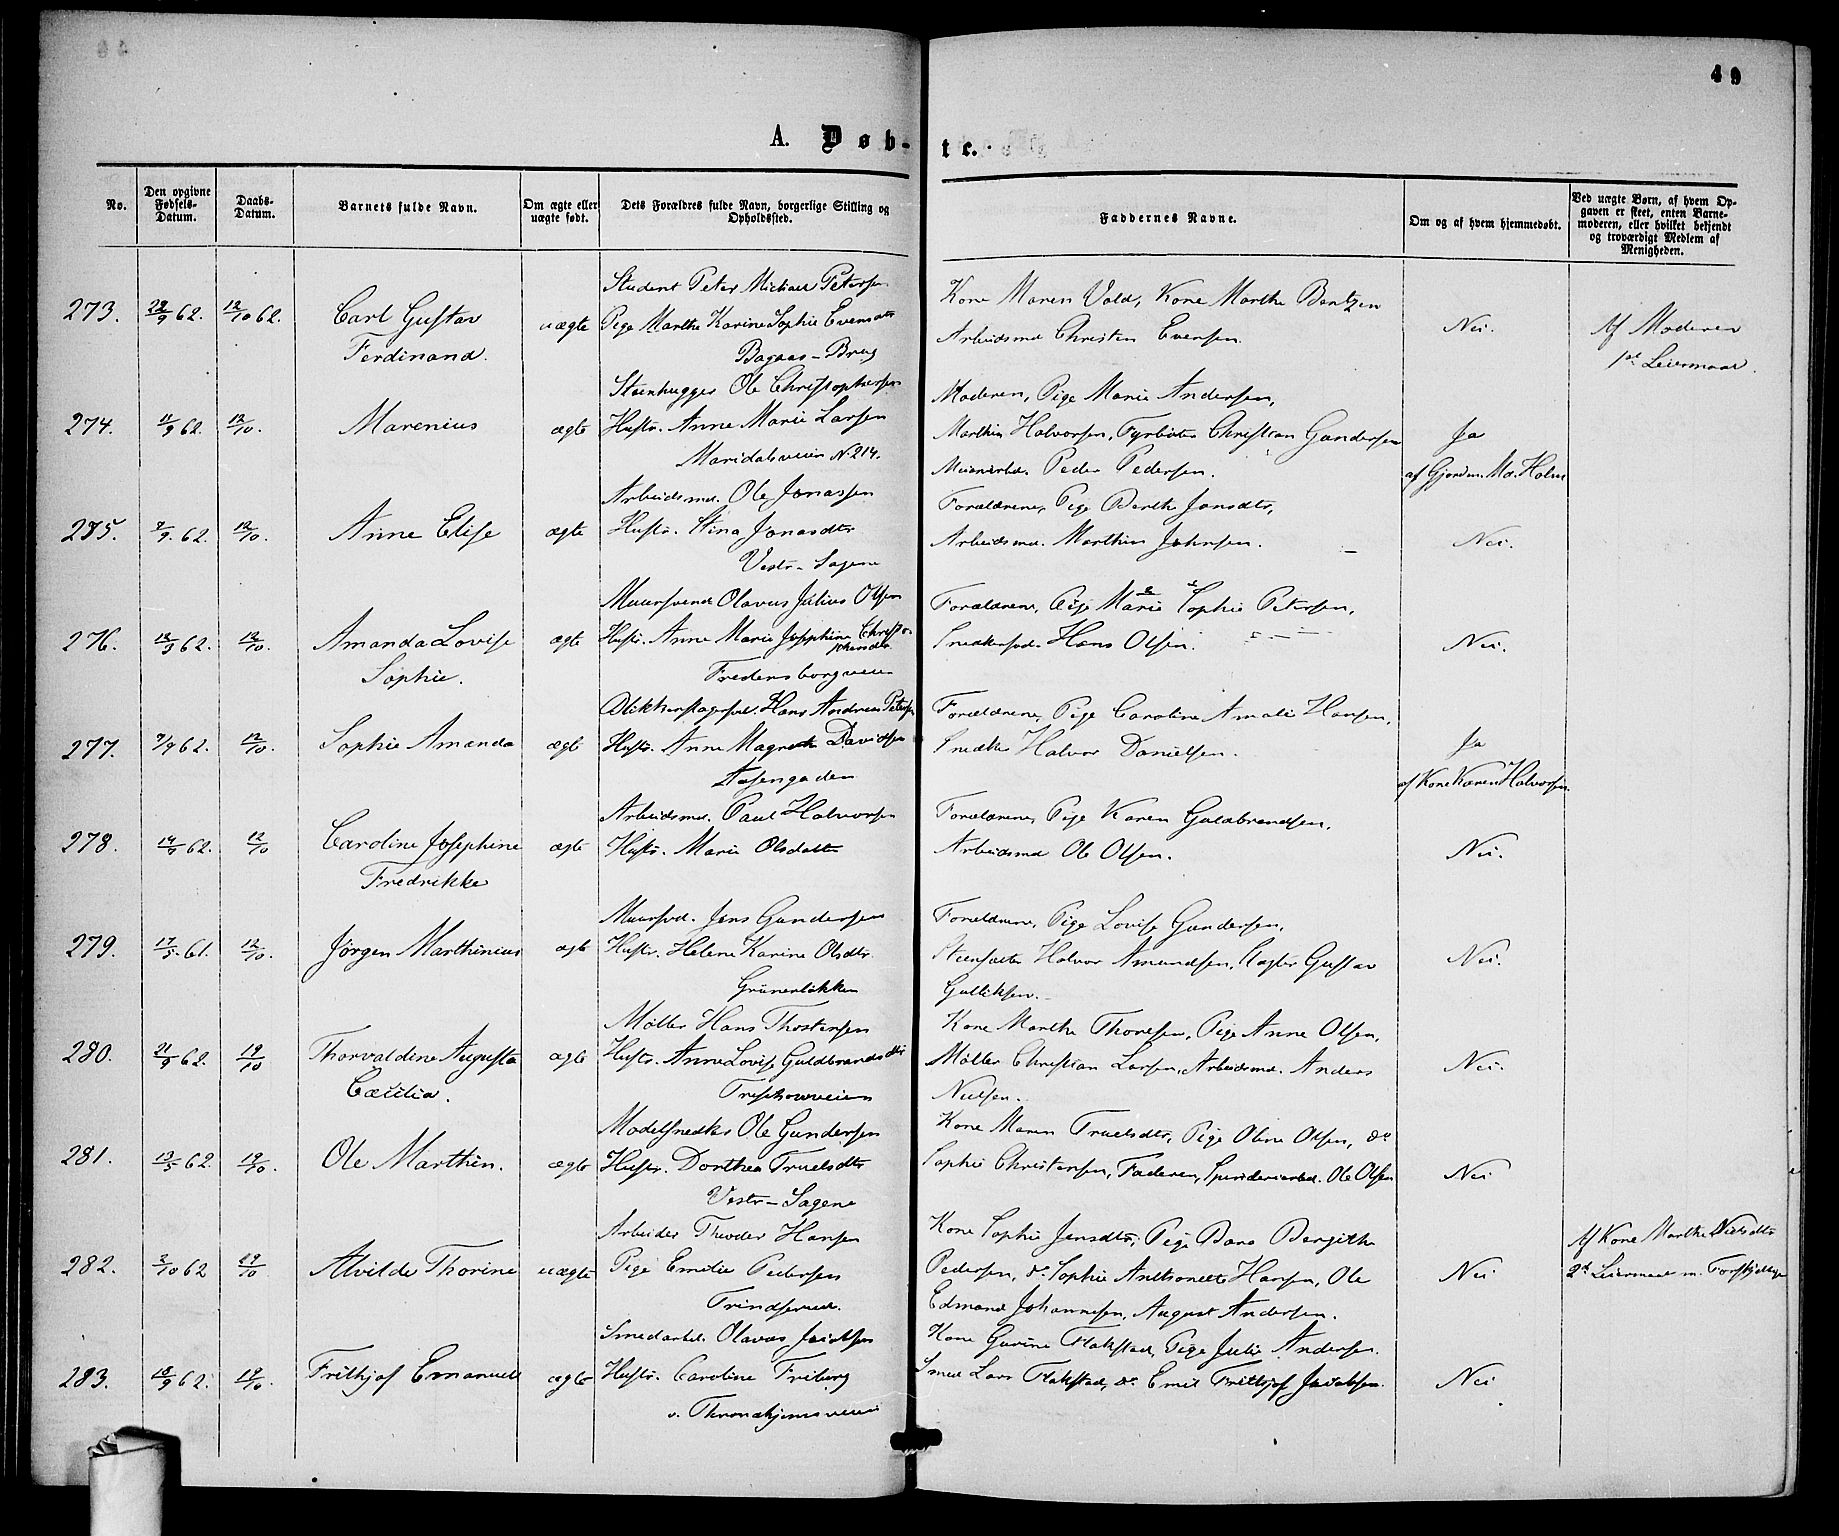 49
A. Døb-
te.
No.
Den opgivne Fødsels-Datum.
Daabs-Datum.
Barnets fulde Navn.
Om ægte eller uægte født.
Dets Forældres fulde Navn, borgerlige Stilling og Opholdssted.
Faddernes Navne.
Om og af hvem hjemmedøbt.
Ved uægte Børn, af hvem Opgaven er skeet, enten Barnemoderen, eller hvilket bekjendt og troværdigt Medlem af Menigheden.
Student Peter Michael Petersen
273. 12/10 62. Carl Gustav uægte Pige Marthe Karine Sophie Evensdtr
Ferdinand. Bagaas-Brug
Kone Maren Vold, Kone Marthe Bentzen
Arbeidsmd Christen Evensen. Nei. Af Moderen
1ste Leiermaal.
Steenhugger Ole Christophersen
274. 11/9 62. 12/10. Marenius ægte Hustr. Anne Marie Larsen
Maridalsveien N. 214.
Moderen, Pige Marie Andersen,
Marthin Halvorsen, Fyrbøter Christian Gundersen Ja
Peder Pedersen. af Gjordm. Md. Holm
Arbeidsmd. Ole Jonassen
275. 12/10. Anne Elise ægte Hustr. Stina Jonasdtr
Vestr-Sagene
Forældrene, Pige Berthe Jonsdtr,
Arbeidsmd. Marthin Johnsen. Nei.
Muursvend Olavus Julius Olsen
276. 12/10. Amanda Lovise ægte Hustr. Anne Marie Josephine Christophersdtr.
Sophie. Fredensborgveien
Forældrene, Pige Marie Sophie Petersen,
Snedkersvd. Hans Olsen. Nei.
Blikkenslagersvd. Hans Andreas Petersen
277. 7/9 62. 12/10. Sophie Amanda ægte Hustr. Anne Magrete Davidsen
Aasengaden
Forældrene, Pige Caroline Amalie Hansen,
Snedker Halvor Danielsen. Ja
af Kone Karen Halvorsen.
Arbeidsmd. Paul Halvorsen
278. 14/9 62. 12/10 Caroline Josephine ægte Hustr. Marie Olsdatter
Fredrikke
Forældrene, Pige Karen Guldbrandsen,
Arbeidsmd Ole Olsen. Nei.
Muursvd. Jens Gundersen
279. 17/5 61. 12/10. Jørgen Marthinius ægte Hustr. Helene Karine Olsdtr.
Grünerløkken
Forældrene, Pige Lovise Gundersen,
Halvor Amundsen, Gustav Nei.
Gulliksen.
Møller Hans Thostensen
280. 21/9 62. 19/10 Thorvaldine Augusta ægte Hustr. Anne Lovise Guldbrandsdtr
Cæcilia. Treschowveien
Kone Marthe Thoresen, Pige Anne Olsen,
Møller Christian Larsen, Arbeidsmd. Anders Nei.
Nielsen.
Modelsnedker Ole Gundersen
281. 13/5 62. 19/10. Ole Marthin. ægte Hustr. Dorthea Truelsdtr
Vestr-Sagene
Kone Maren Truelsdtr, Pige Oline Olsen, do
Sophie Christensen, Faderen, Spinderiarbd. Ole Olsen Nei
Arbeider Theodor Hansen
282. 2/10 62 19/10 Alvilde Thorine uægte Pige Emilie Pedersen
Trindserud.
Kone Sophie Jensdtr, Pige Bergithe
Pedersen, do. Sophie Antonette Hansen, Ole Nei
Edmand Johannesen, August Andersen.
Af Kone Marthe Nielsdtr
2det Leiermaal m. Forskjellige
Smedarbd. Olavus Jacobsen
283. 18/9 62. 19/10. Frithjof Emanuel ægte Hustr. Caroline Friberg
v. Throndhjemsveien
Kone Gurine Flakstad, Pige Julie Andersen.
Smed Lars Flakstad, do. Emil Frithjof Jacobsen. Nei